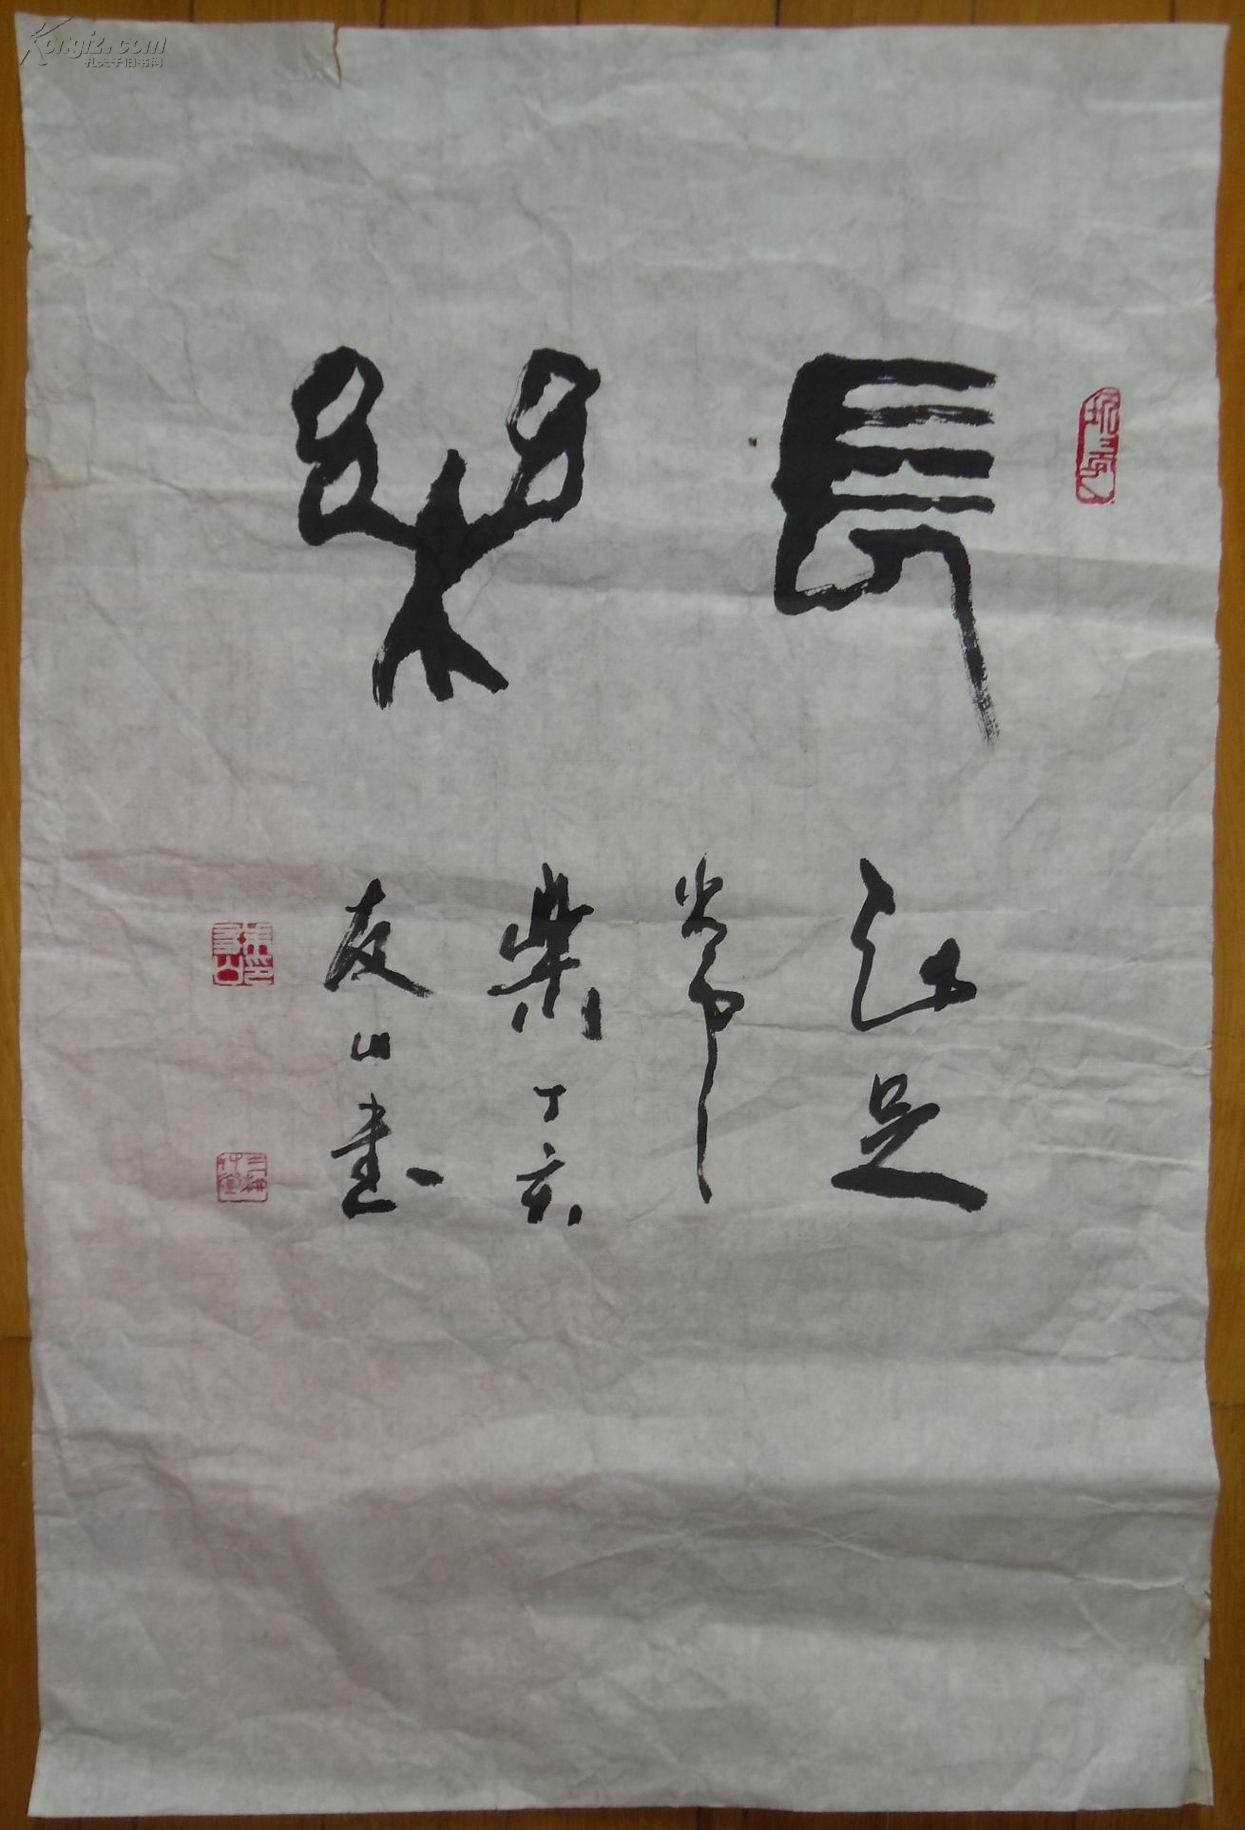 長樂
知足
常
樂丁亥
友山書
Kongfz.com
孔夫子旧书网